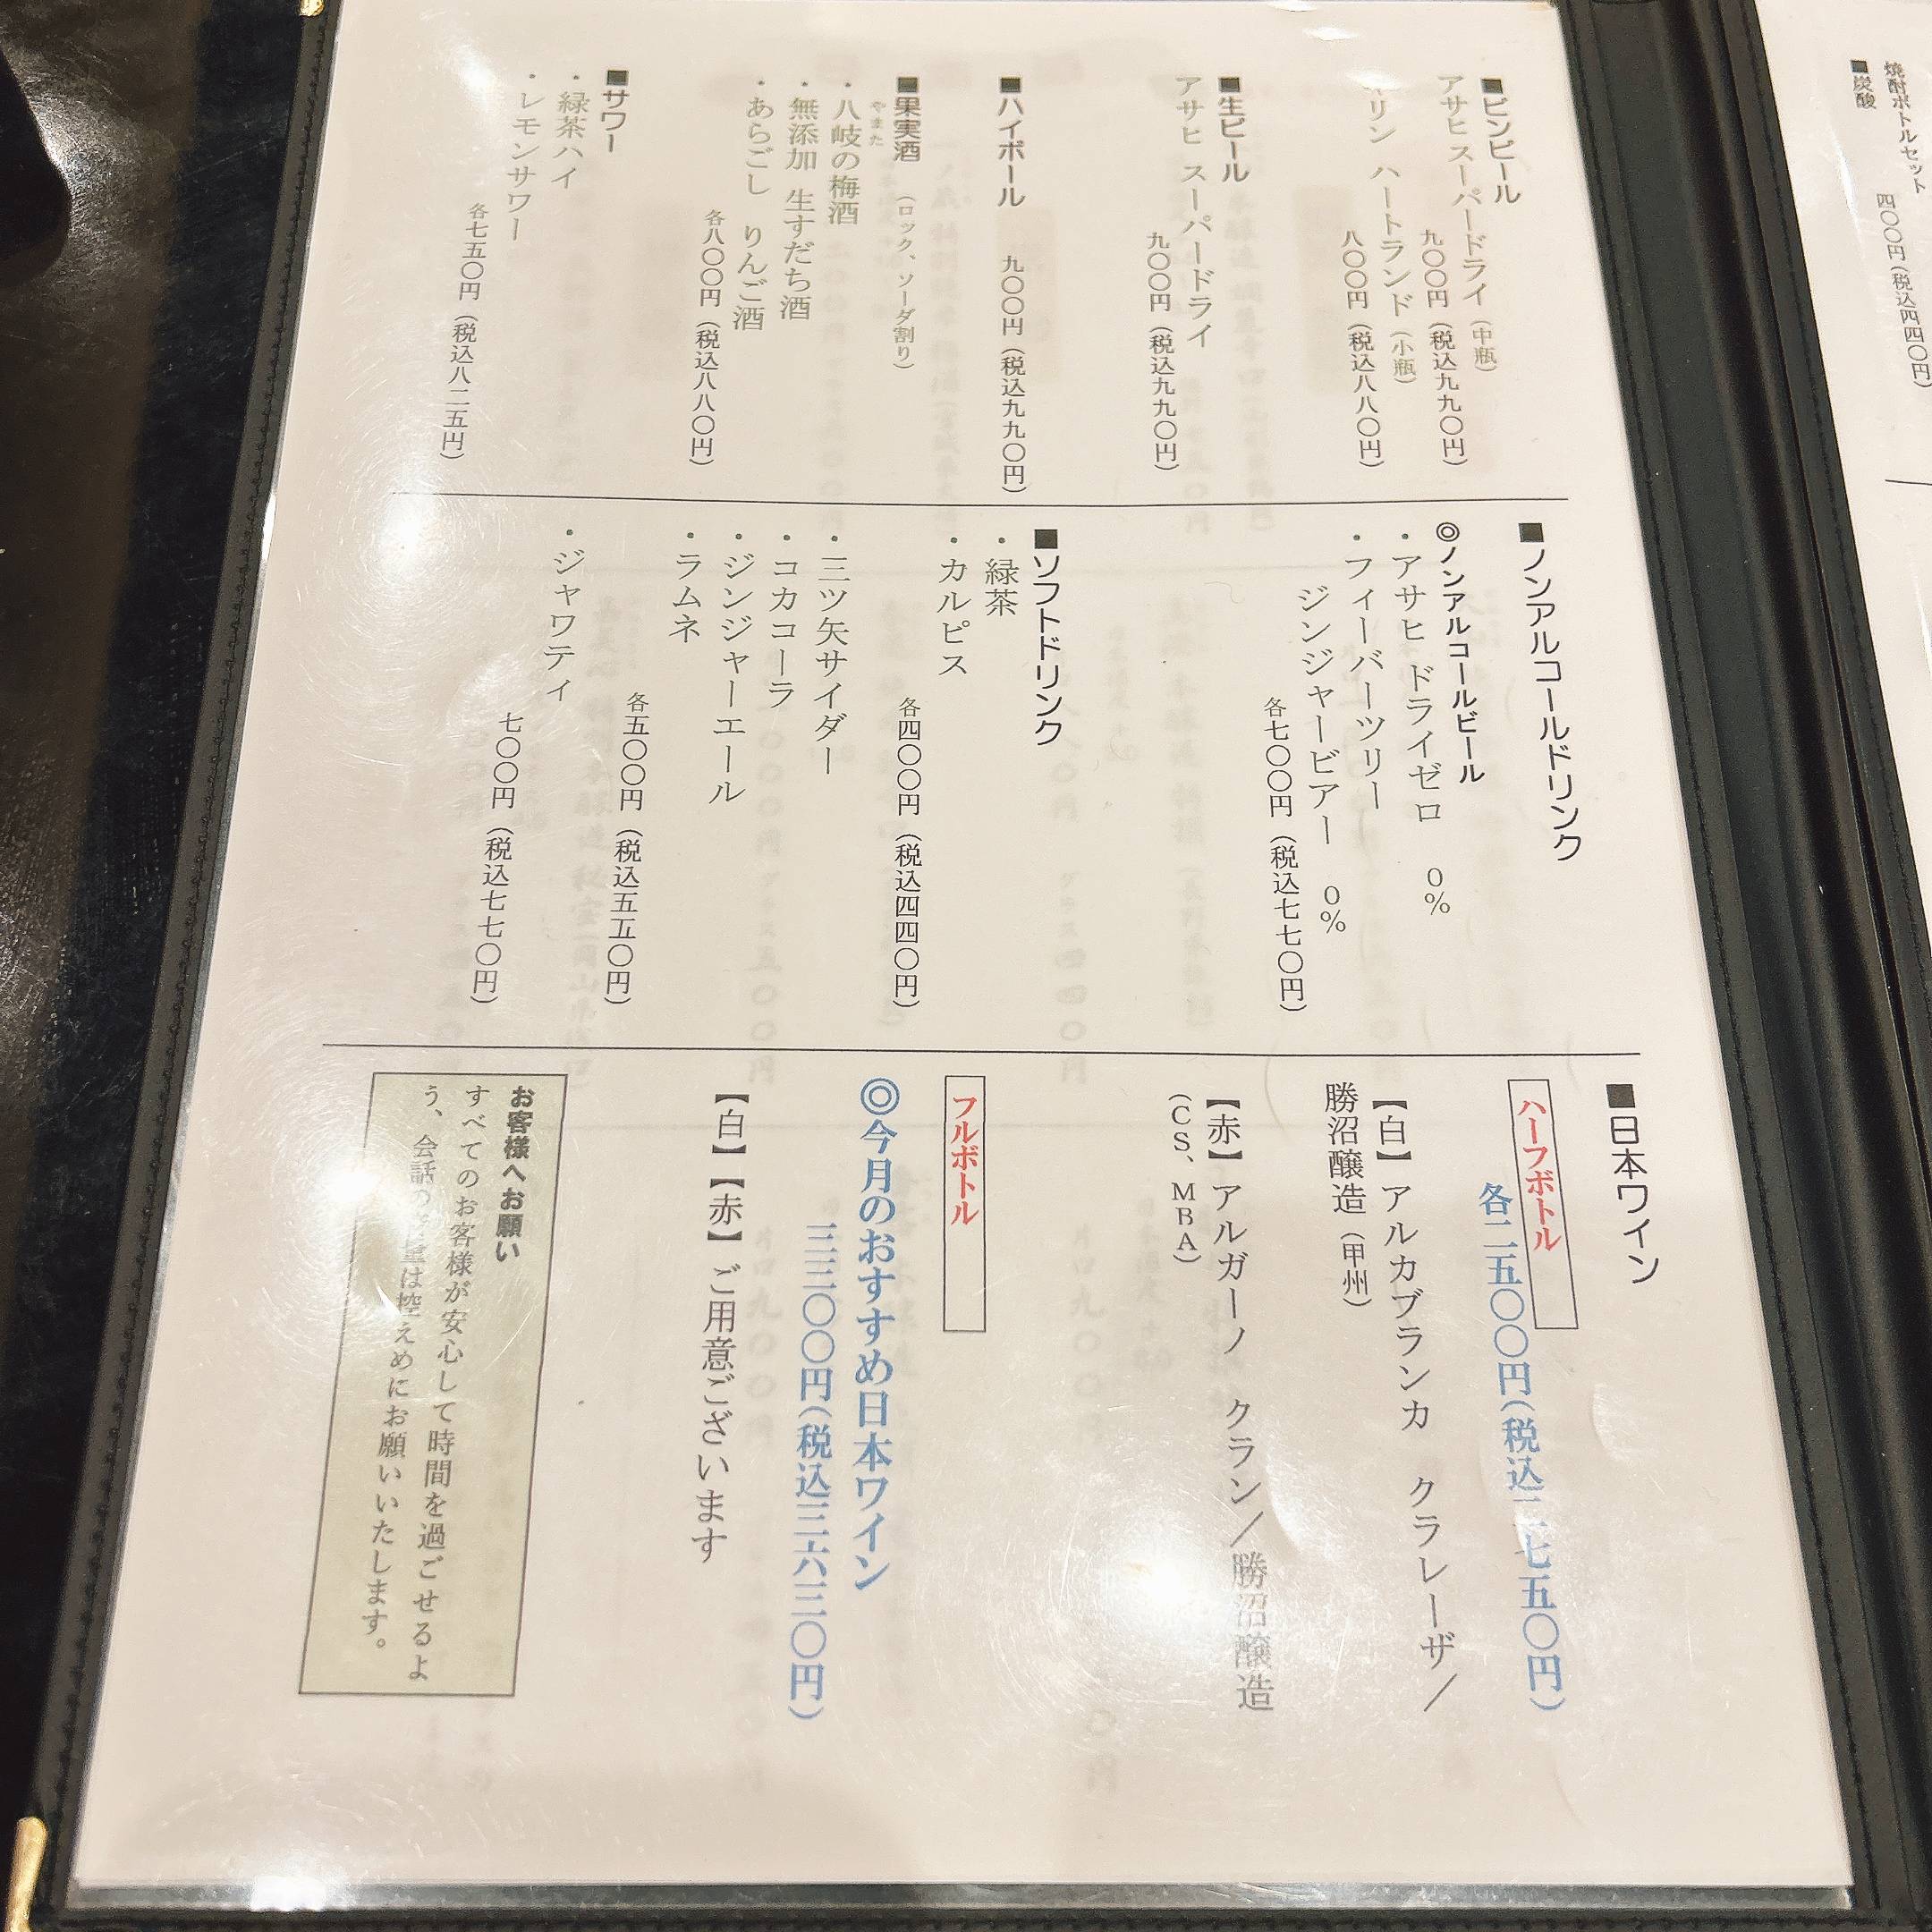 焼酎ボトルセット
四〇〇円(税込四四〇円)
■炭酸
■ビンビール
アサヒ スーパードライ(中瓶)
九〇〇円(税込九九〇円)
リン ハートランド(小瓶)
八〇〇円(税込八八〇円)
■生ビール
アサヒ スーパードライ
九〇〇円(税込九九〇円)
■ハイボール 九〇〇円(税込九九〇円)
■果実酒 (ロック、ソーダ割り)
やまた
・八岐の梅酒
・無添加 生すだち酒
・あらごし りんご酒
各八〇〇円(税込八八〇円)
■サワー
・緑茶ハイ
・レモンサワー
各七五〇円(税込八二五円)
■ノンアルコールドリンク
◎ノンアルコールビール
・アサヒ ドライゼロ 0%
・フィーバーツリー
ジンジャービアー 0%
各七〇〇円(税込七七〇円)
■ソフトドリンク
・緑茶
・カルピス
各四〇〇円(税込四四〇円)
・三ツ矢サイダー
・コカコーラ
・ジンジャーエール
・ラムネ
各五〇〇円(税込五五〇円)
・ジャワティ
七〇〇円(税込七七〇円)
■日本ワイン
ハーフボトル
各二五〇〇円(税込二七五〇円)
【白】アルカブランカ クラレーザ/
勝沼醸造(甲州)
【赤】アルガーノ クラン/勝沼醸造
(CS、MBA)
フルボトル
◎今月のおすすめ日本ワイン
三三〇〇円(税込三六三〇円)
【白】【赤】ご用意ございます
お客様へお願い
すべてのお客様が安心して時間を過ごせるよ
う、会話の量は控えめにお願いいたします。